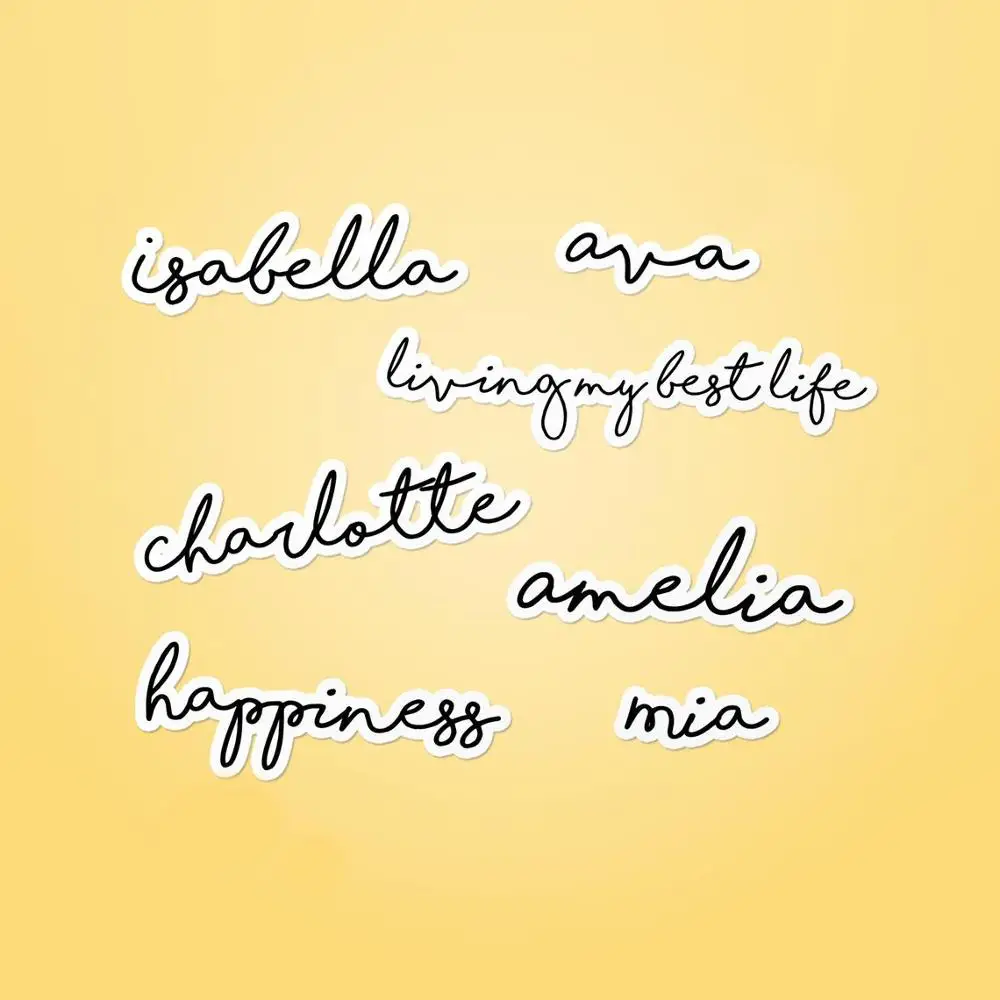 isabella
ava
living my best life
charlotte
amelia
happiness
mia